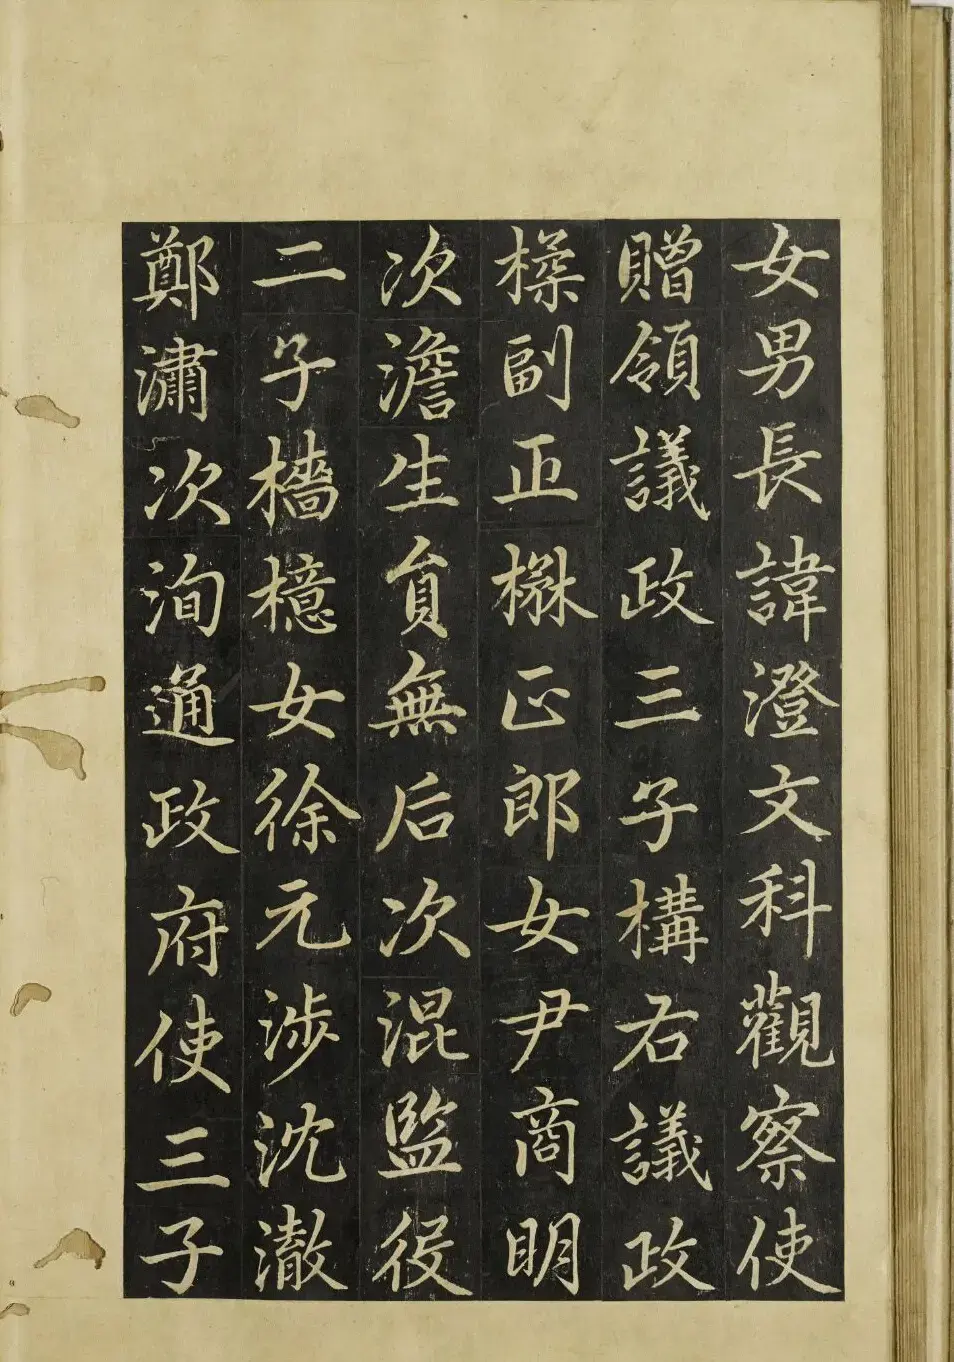 女男長諱澄文科觀察使
贈領議政三子構右議政
副正正郎女尹商明
次澹生員無后次混監役
二子檣檍女徐元涉沈澈
鄭潚次洵通政府使三子